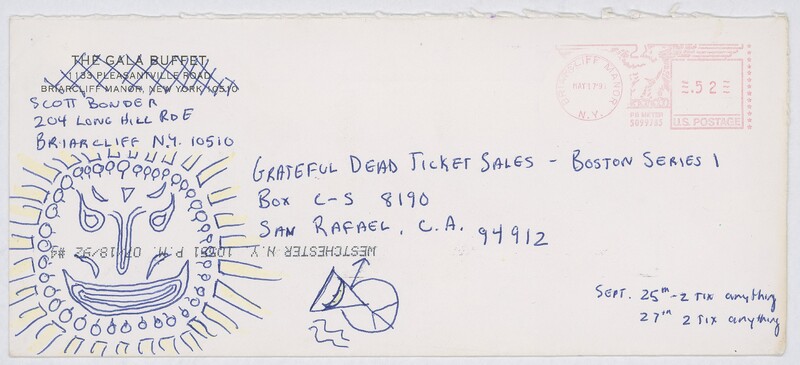 THE GALA BUFFET
1133 PLEASANTVILLE ROAD
BRIARCLIFF MANOR, NEW YORK 10510
SCOTT BONDER
204 LONG HILL RD E
BRIARCLIFF N.Y. 10510
BRIARCLIFF MANOR
N.Y.
.52
PB METER
U.S. POSTAGE
GRATEFUL DEAD TICKET SALES - BOSTON SERIES 1
BOX C-S 8190
SAN RAFAEL, C.A. 94912
WESTCHESTER N.Y. 10591 P.M. 07/18/92 #4
SEPT. 25th - 2 TIX anything
27th 2 TIX anything